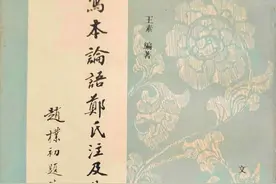 寫本論語鄭氏注及
趙樸初題
王素 編著
文